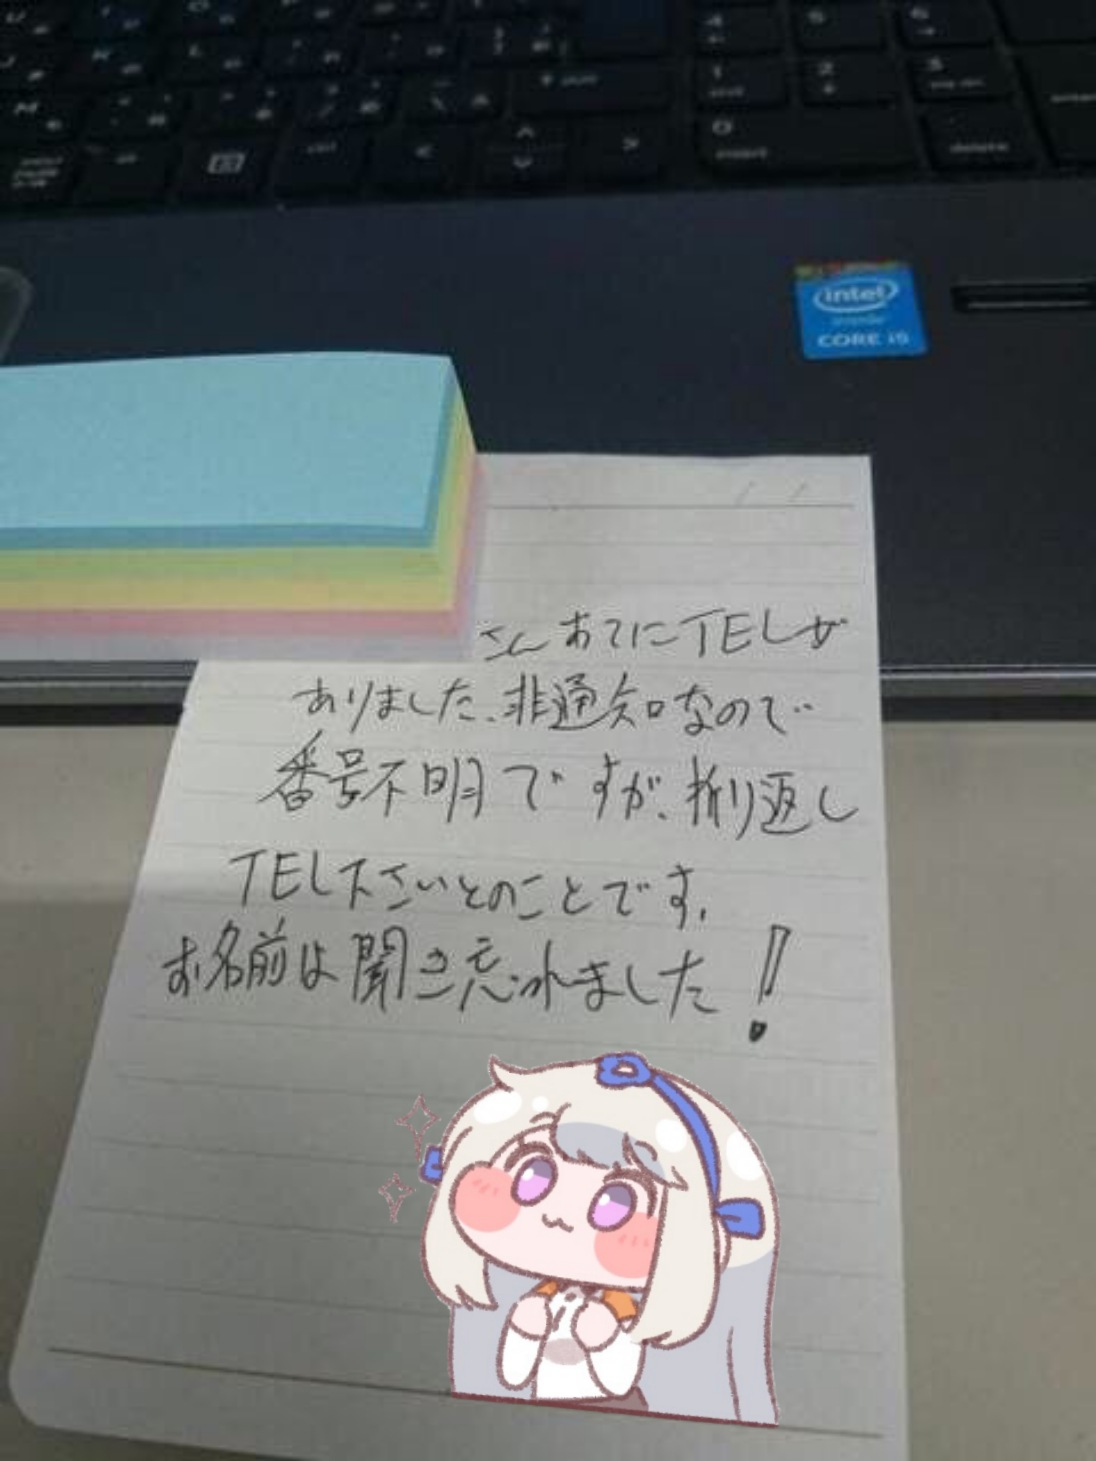 4
5
6
1
2
3
0
insert
delete
intel
inside
CORE i5
さんあてにTELが
ありました、非通知なので
番号不明ですが、折り返し
TEL下さいとのことです。
お名前は聞き忘れました!